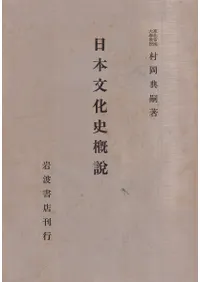 村岡典嗣著
日本文化史概說
岩波書店刊行